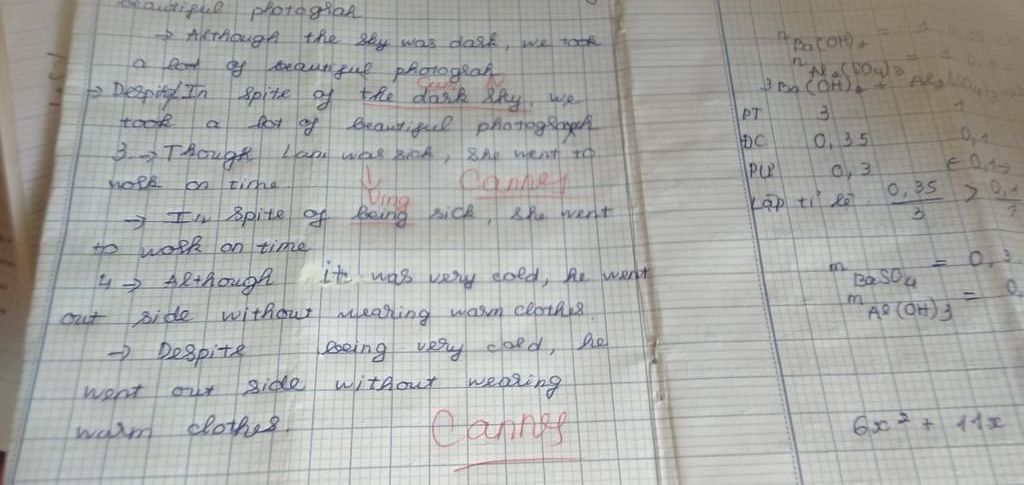 beautiful photograh
→ Although the sky was dark, we took
a lot of beautiful photograh
→ Despite/In spite of the dark sky, we
took a lot of beautiful photograph
3 → Though I am was sick, she went to
work on time.
Ving Canney
→ In spite of being sick, she went
to work on time
4 → Although it was very cold, he went
out side without wearing warm clothes.
→ Despite being very cold, he
went out side without wearing
warm clothes.
Canney
n Ba(OH)2 =
n Al2(SO4)3 =
3Ba(OH)2 +
PT 3 1
DC 0,35 0,1
PƯ 0,3 ← 0,1→
Lập tỉ lệ 0,35/3 > 0,1/1
m BaSO4 = 0,3
m Al(OH)3 = 0,
6x² + 11x